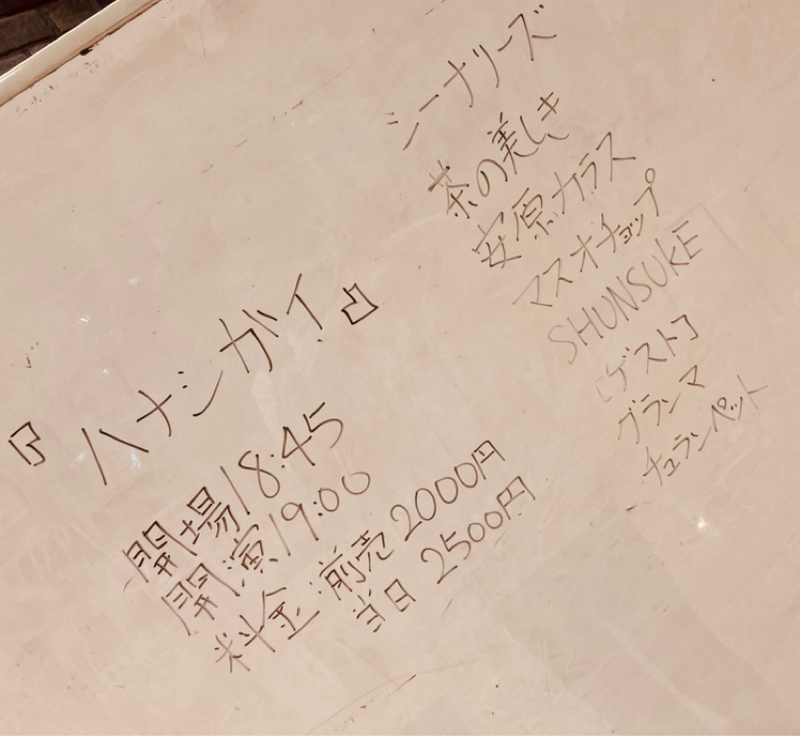 『ハナシガイ』
開場18:45
開演19:00
料金:前売2000円
当日 2500円
シーナリーズ
茶の美しき
安原カラス
マスオチョップ
SHUNSUKE
[ゲスト]
グランマ
チュランペット